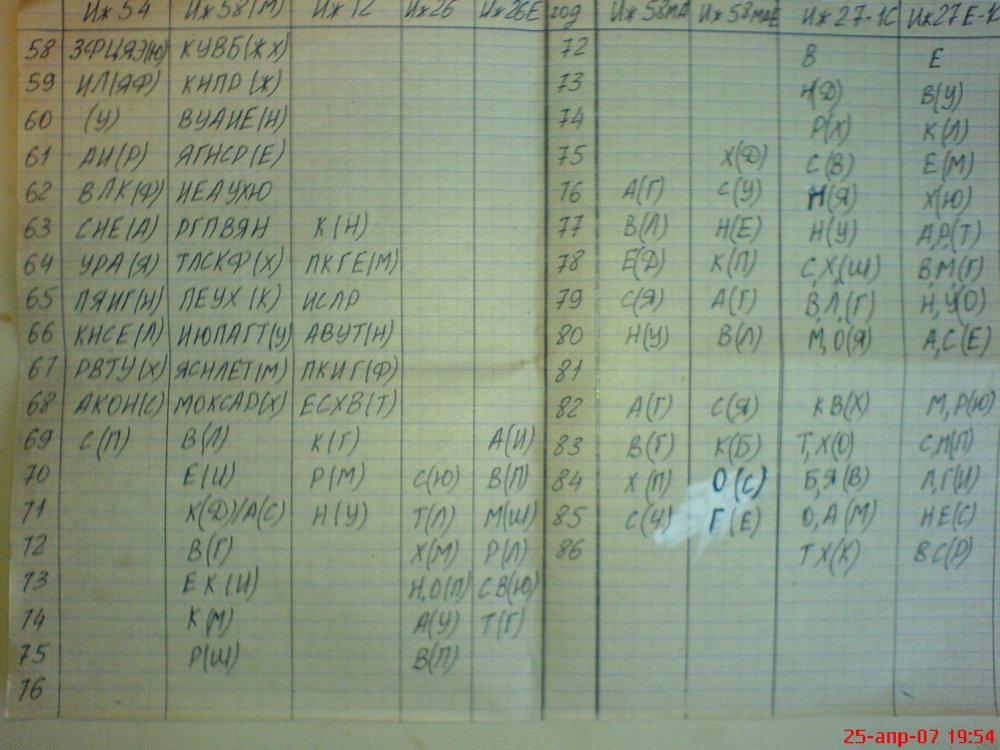 Иж 54 Иж 58(М) Иж 12 Иж 26 Иж 26Е год Иж 58МА Иж 58МАЕ Иж 27-1С Иж 27Е-1С
58 ЗФЦЯЭ(Ю) КУВБ(ЖХ) 72 В Е
59 ИЛ(ЯФ) КНПР(Ж) 73 Н(Д) В(У)
60 (У) ВУАИЕ(Н) 74 Р(Х) К(Л)
61 АИ(Р) ЯГНСР(Е) 75 Х(Д) С(В) Е(М)
62 ВЛК(Ф) ИЕАУХЮ 76 А(Г) С(У) Н(Я) Х(Ю)
63 СНЕ(А) РГПВЯН К(Н) 77 В(Л) Н(Е) Н(У) А,Р(Т)
64 УРА(Я) ТЛСКФ(Х) ПКГЕ(М) 78 Е(Д) К(П) С,Х(Ш) В,М(Г)
65 ПЯИГ(Н) ПЕУХ(К) ИСЛР 79 С(Я) А(Г) В,Л,(Г) Н,У(О)
66 КНСЕ(Л) ИЮПАГТ(У) АВУТ(Н) 80 Н(У) В(Л) М,О(Я) А,С(Е)
67 РВТУ(Х) ЯСНЛЕТ(М) ПКИГ(Ф) 81
68 АКОН(С) МОКСАР(Х) ЕСХВ(Т) 82 А(Г) С(Я) КВ(Х) М,Р(Ю)
69 С(П) В(Л) К(Г) А(И) 83 В(Г) К(Б) Т,Х(О) С,Л(П)
70 Е(И) Р(М) С(Ю) В(П) 84 Х(П) О(С) Б,Я(В) Л,Г(И)
71 К(Д)/А(С) Н(У) Т(Л) М(Ш) 85 С(Ч) Г(Е) О,А(М) НЕ(С)
72 В(Г) Х(М) Р(Л) 86 ТХ(К) ВС(Р)
73 ЕК(И) Н,О(П) СВ(Ю)
74 К(М) А(У) Т(Г)
75 Р(Ш) В(П)
76
25-апр-07 19:54